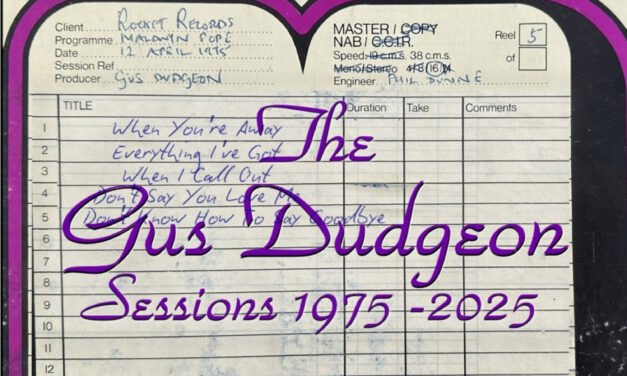 Client Rocket Records
Programme MALDWYN POPE
Date 12 APRIL 1975
Session Ref
Producer GUS DUDGEON
MASTER / COPY
NAB / C.C.I.R.
Speed: 19 c.m.s. 38 c.m.s.
Mono/Stereo 4/8/16
Engineer PHIL DUNNE
Reel 5
of
TITLE Duration Take Comments
1 When You're Away
2 Everything I've Got
3 When I Call Out
4 Don't Say You Love Me
5 Don't Know How To Say Goodbye
6
7
8
9
10
11
12
The
Gus Dudgeon
Sessions 1975 -2025